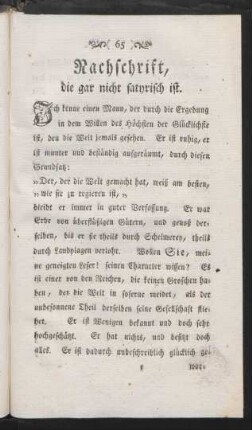 65
Nachschrift,
die gar nicht satyrisch ist.
Ich kenne einen Mann, der durch die Ergebung
in dem Willen des Höchsten der Glücklichste
ist, den die Welt jemals gesehen. Er ist ruhig, er
ist munter und beständig aufgeräumt, durch diesen
Grundsatz:
„Der, der die Welt gemacht hat, weiß am besten,
„wie sie zu regieren ist,„
bleibt er immer in guter Verfassung. Er war
Erbe von überflüßigen Gütern, und genoß der-
selben, bis er sie theils durch Schelmerey, theils
durch Landplagen verlohr. Wollen Sie, mei-
ne geneigten Leser! seinen Character wissen? Es
ist einer von den Reichen, die keinen Groschen ha-
ben, den die Welt in soferne meidet, als der
unbesonnene Theil derselben seine Gesellschaft flie-
het. Er ist Wenigen bekannt und doch sehr
hochgeschätzt. Er hat nichts, und besitzt doch
alles. Er ist dadurch unbeschreiblich glücklich ge-